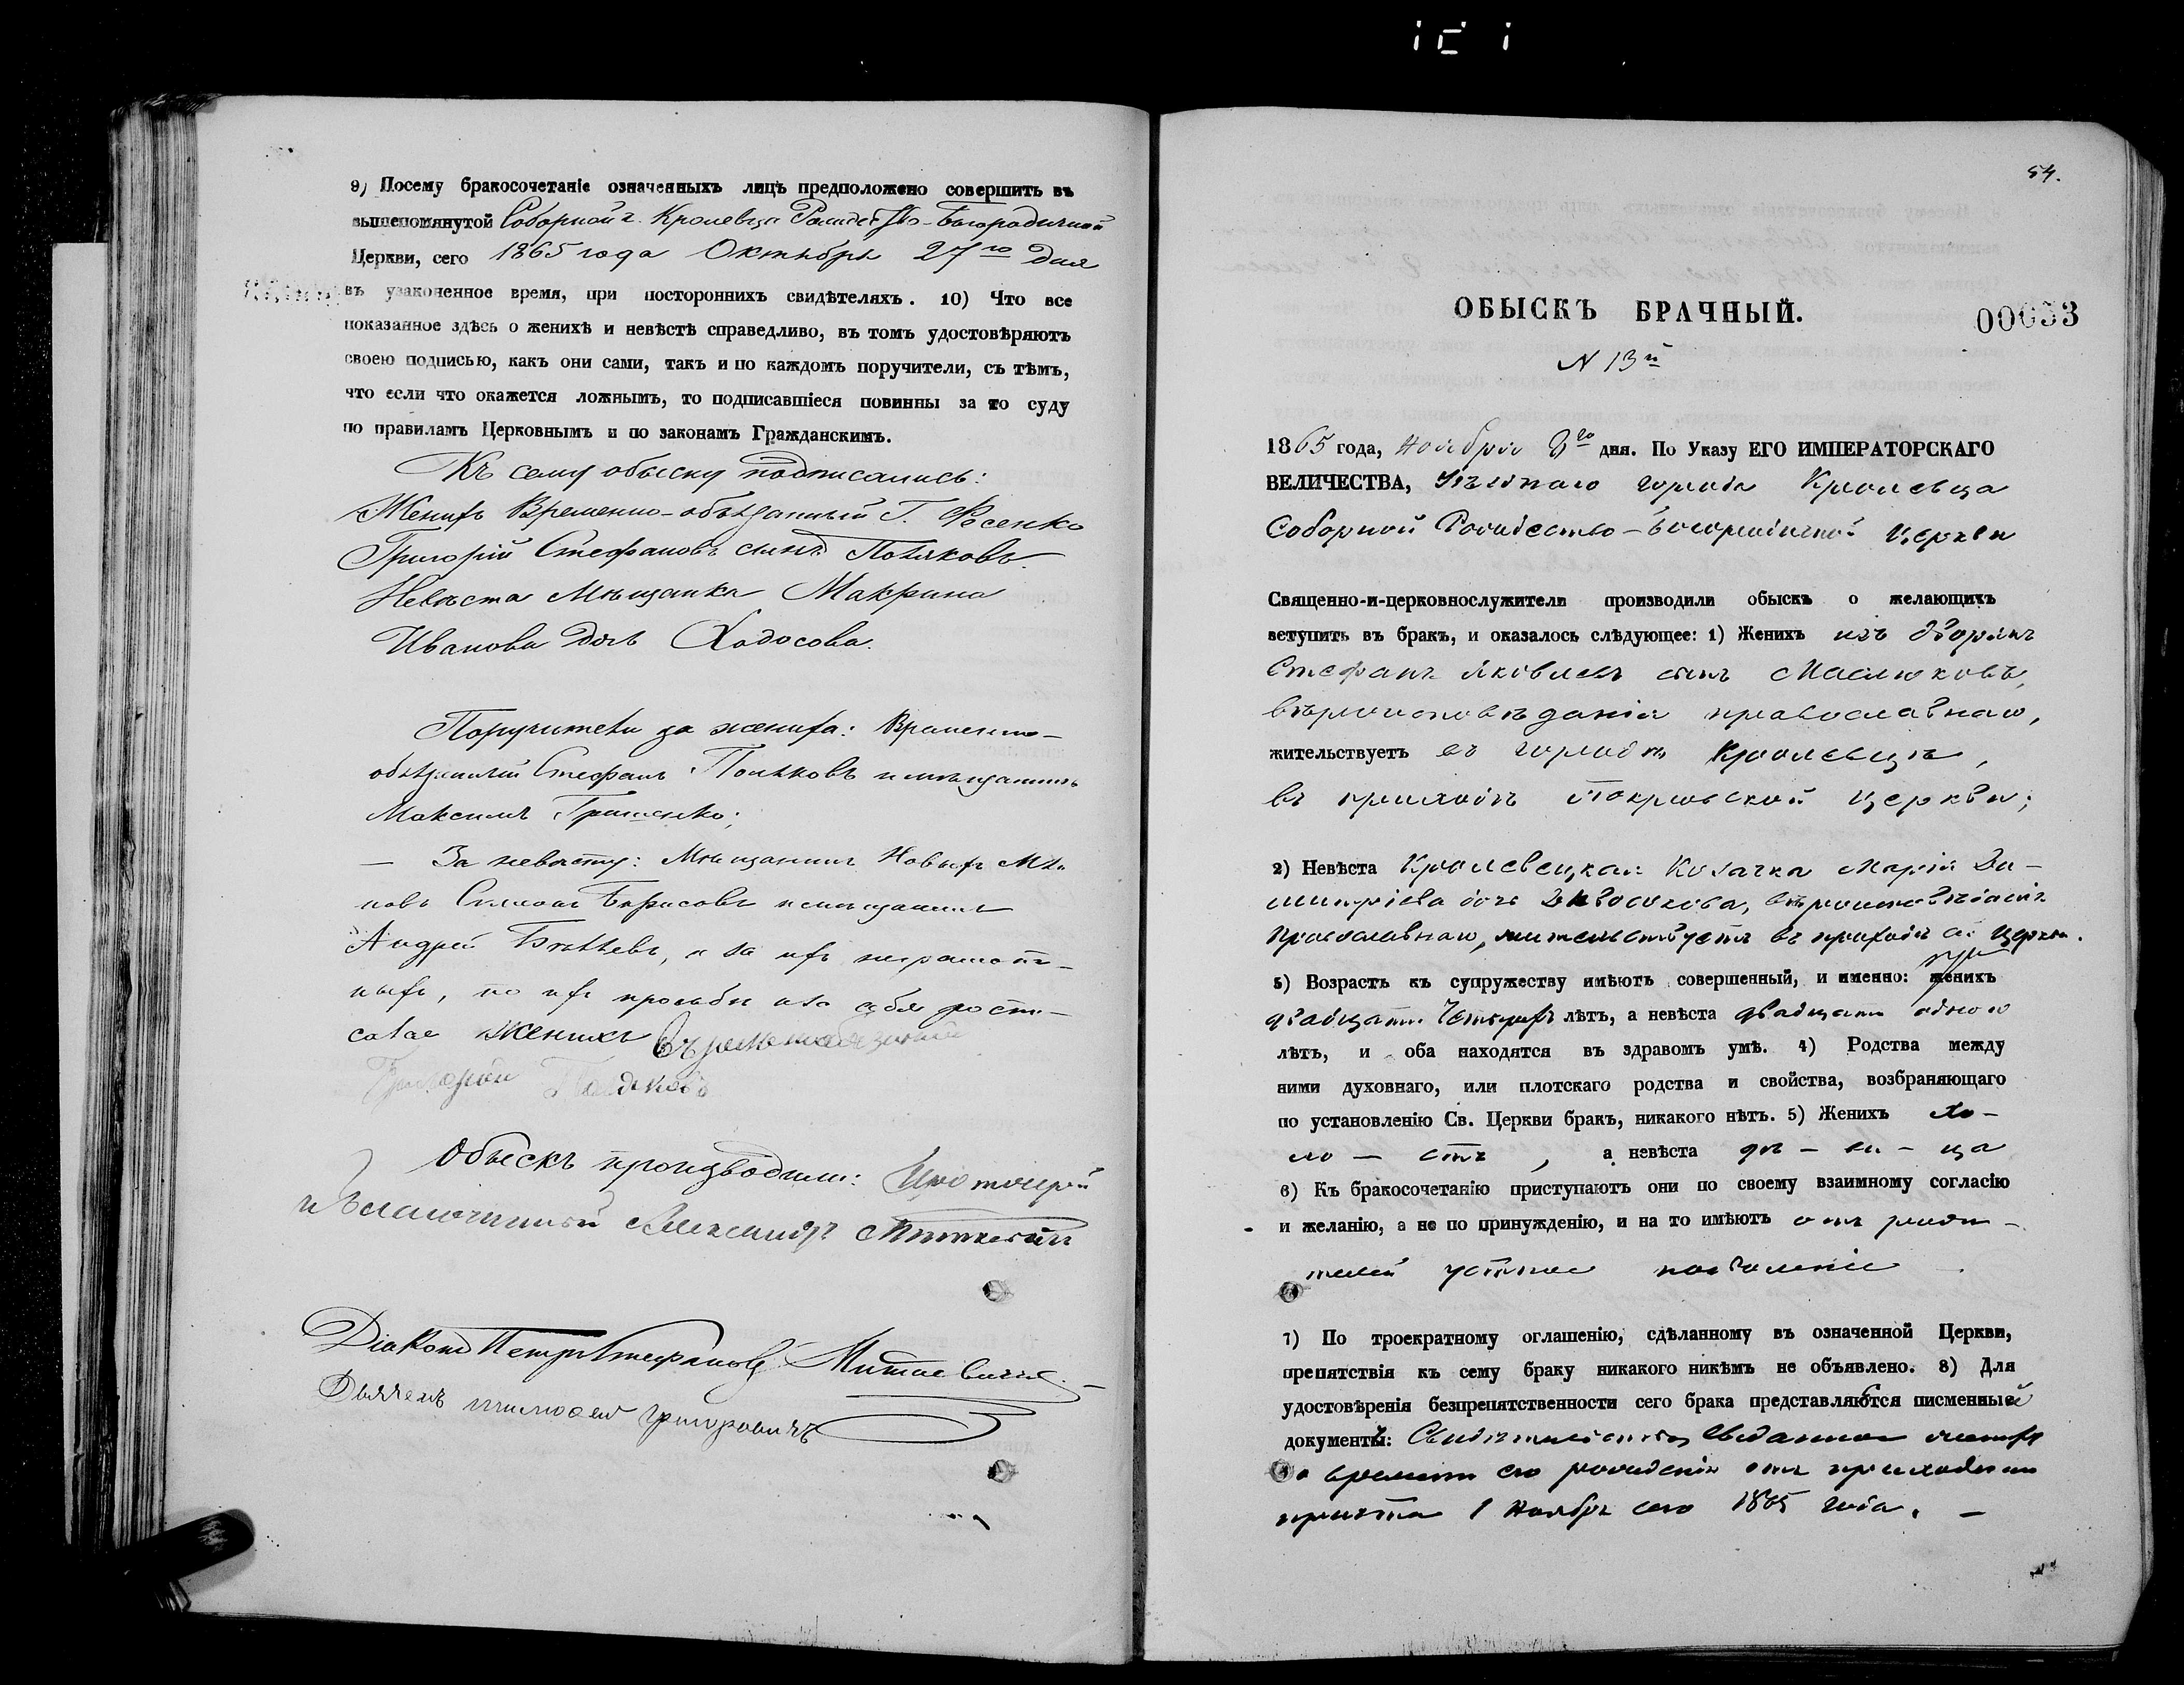 9) Посему бракосочетаніе означенныхъ лицъ предположено совершить въ
вышепомянутой Соборной г. Кролевца Рождество-Богородичной
Церкви, сего 1865 года Октября 27го дня
въ узаконенное время, при постороннихъ свидѣтеляхъ. 10) Что все
показанное здѣсь о женихѣ и невѣстѣ справедливо, въ томъ удостовѣряютъ
своею подписью, какъ они сами, такъ и по каждомъ поручители, съ тѣмъ,
что если что окажется ложнымъ, то подписавшіеся повинны за то суду
по правиламъ Церковнымъ и по законамъ Гражданскимъ.
Къ сему обыску подписались:
Женихъ Временно-обязанный Г. Фосенко
Григорій Стефановъ сынъ Поляковъ.
Невѣста Мѣщанка Макрина
Иванова дочь Ходосова.
Поручители за жениха: Временно-
обязанный Стефанъ Поляковъ и мѣщанинъ
Максимъ Грищенко;
— За невѣсту: Мѣщанинъ
Борисовъ и мѣщанинъ
Андрей а за ихъ неграмот-
ныхъ, по ихъ прозьбы и за себя роспи-
сался Женихъ Временнообязаный
Григорій Поляковъ
Обыскъ производили: Протоіерей
и Благочинный Александръ Миткевичъ
Діаконъ Петръ Стефановъ Миткевичъ
Дьячекъ Григоровичъ
54.
ОБЫСКЪ БРАЧНЫЙ.
00053
N 13й
1865 года, Ноября 8го дня. По Указу ЕГО ИМПЕРАТОРСКАГО
ВЕЛИЧЕСТВА, Уѣзднаго города Кролевца
Соборной Рождество-Богородичной Церкви
Священно-и-церковнослужители производили обыскъ о желающихъ
вступить въ бракъ, и оказалось слѣдующее: 1) Женихъ изъ дворянъ
Стефанъ Яковлевъ сынъ Маслюковъ,
вѣроисповѣданія православнаго,
жительствуетъ въ городѣ Кролевцѣ,
въ приходѣ Покровской Церкви;
2) Невѣста Кролевецкая Козачка Марія Ди-
митріева дочь вѣроисповѣданія
Православнаго, жительствуетъ въ приходѣ сей Церкви.
3) Возрастъ къ супружеству имѣютъ совершенный, и именно: женихъ
двадцати четырехъ лѣтъ, а невѣста двадцати одного
лѣтъ, и оба находятся въ здравомъ умѣ. 4) Родства между
ними духовнаго, или плотскаго родства и свойства, возбраняющаго
по установленію Св. Церкви бракъ, никакого нѣтъ. 5) Женихъ хо-
ло — стъ, а невѣста дѣ — ви — ца
6) Къ бракосочетанію приступаютъ они по своему взаимному согласію
и желанію, а не по принужденію, и на то имѣютъ отъ роди-
телей устное позволеніе
7) По троекратному оглашенію, сдѣланному въ означенной Церкви,
препятствія къ сему браку никакого никѣмъ не объявлено. 8) Для
удостовѣренія безпрепятственности сего брака представляются писменные
документы: Свидѣтельство, выданное жениху
о времени его рожденія отъ приходскаго
причта 1 Ноября сего 1865 года. —